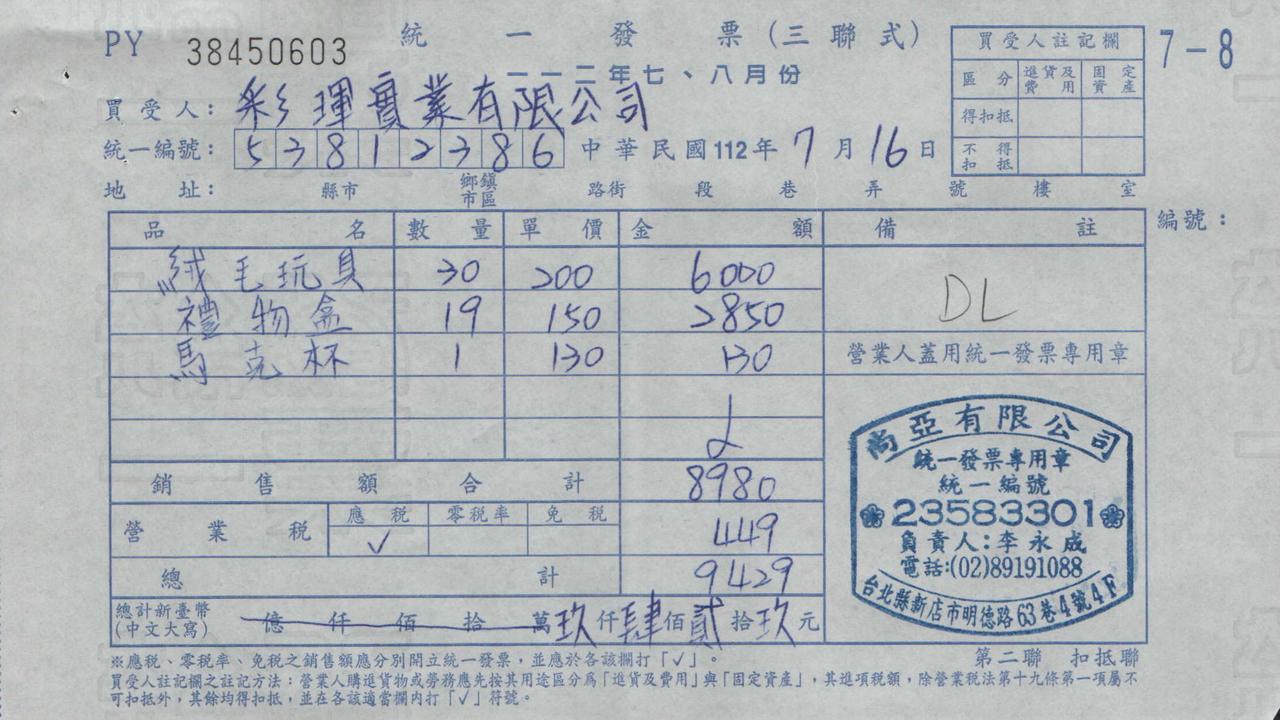 PY 38450603 統一發票(三聯式)
一一二年七、八月份
7-8
買受人註記欄
區分 進貨及費用 固定資產
得扣抵
不得扣抵
買受人: 彩琿實業有限公司
統一編號: 53812386 中華民國112年7月16日
地址: 縣市 鄉鎮市區 路街 段 巷 弄 號 樓 室
編號:
品名 數量 單價 金額 備註
絨毛玩具 30 200 6000
DL
禮物盒 19 150 2850
馬克杯 1 130 130
營業人蓋用統一發票專用章
銷售額合計 8980
營業稅 應稅 零稅率 免稅
✓ 449
總計 9429
總計新臺幣(中文大寫) 億仟佰拾萬玖仟肆佰貳拾玖元
尚亞有限公司
統一發票專用章
統一編號
23583301
負責人:李永成
電話:(02)89191088
台北縣新店市明德路63巷4號4F
※應稅、零稅率、免稅之銷售額應分別開立統一發票,並應於各該欄打「✓」。
第二聯 扣抵聯
買受人註記欄之註記方法:營業人購進貨物或勞務應先按其用途區分為「進貨及費用」與「固定資產」,其進項稅額,除營業稅法第十九條第一項屬不
可扣抵外,其餘均得扣抵,並在各該適當欄內打「✓」符號。